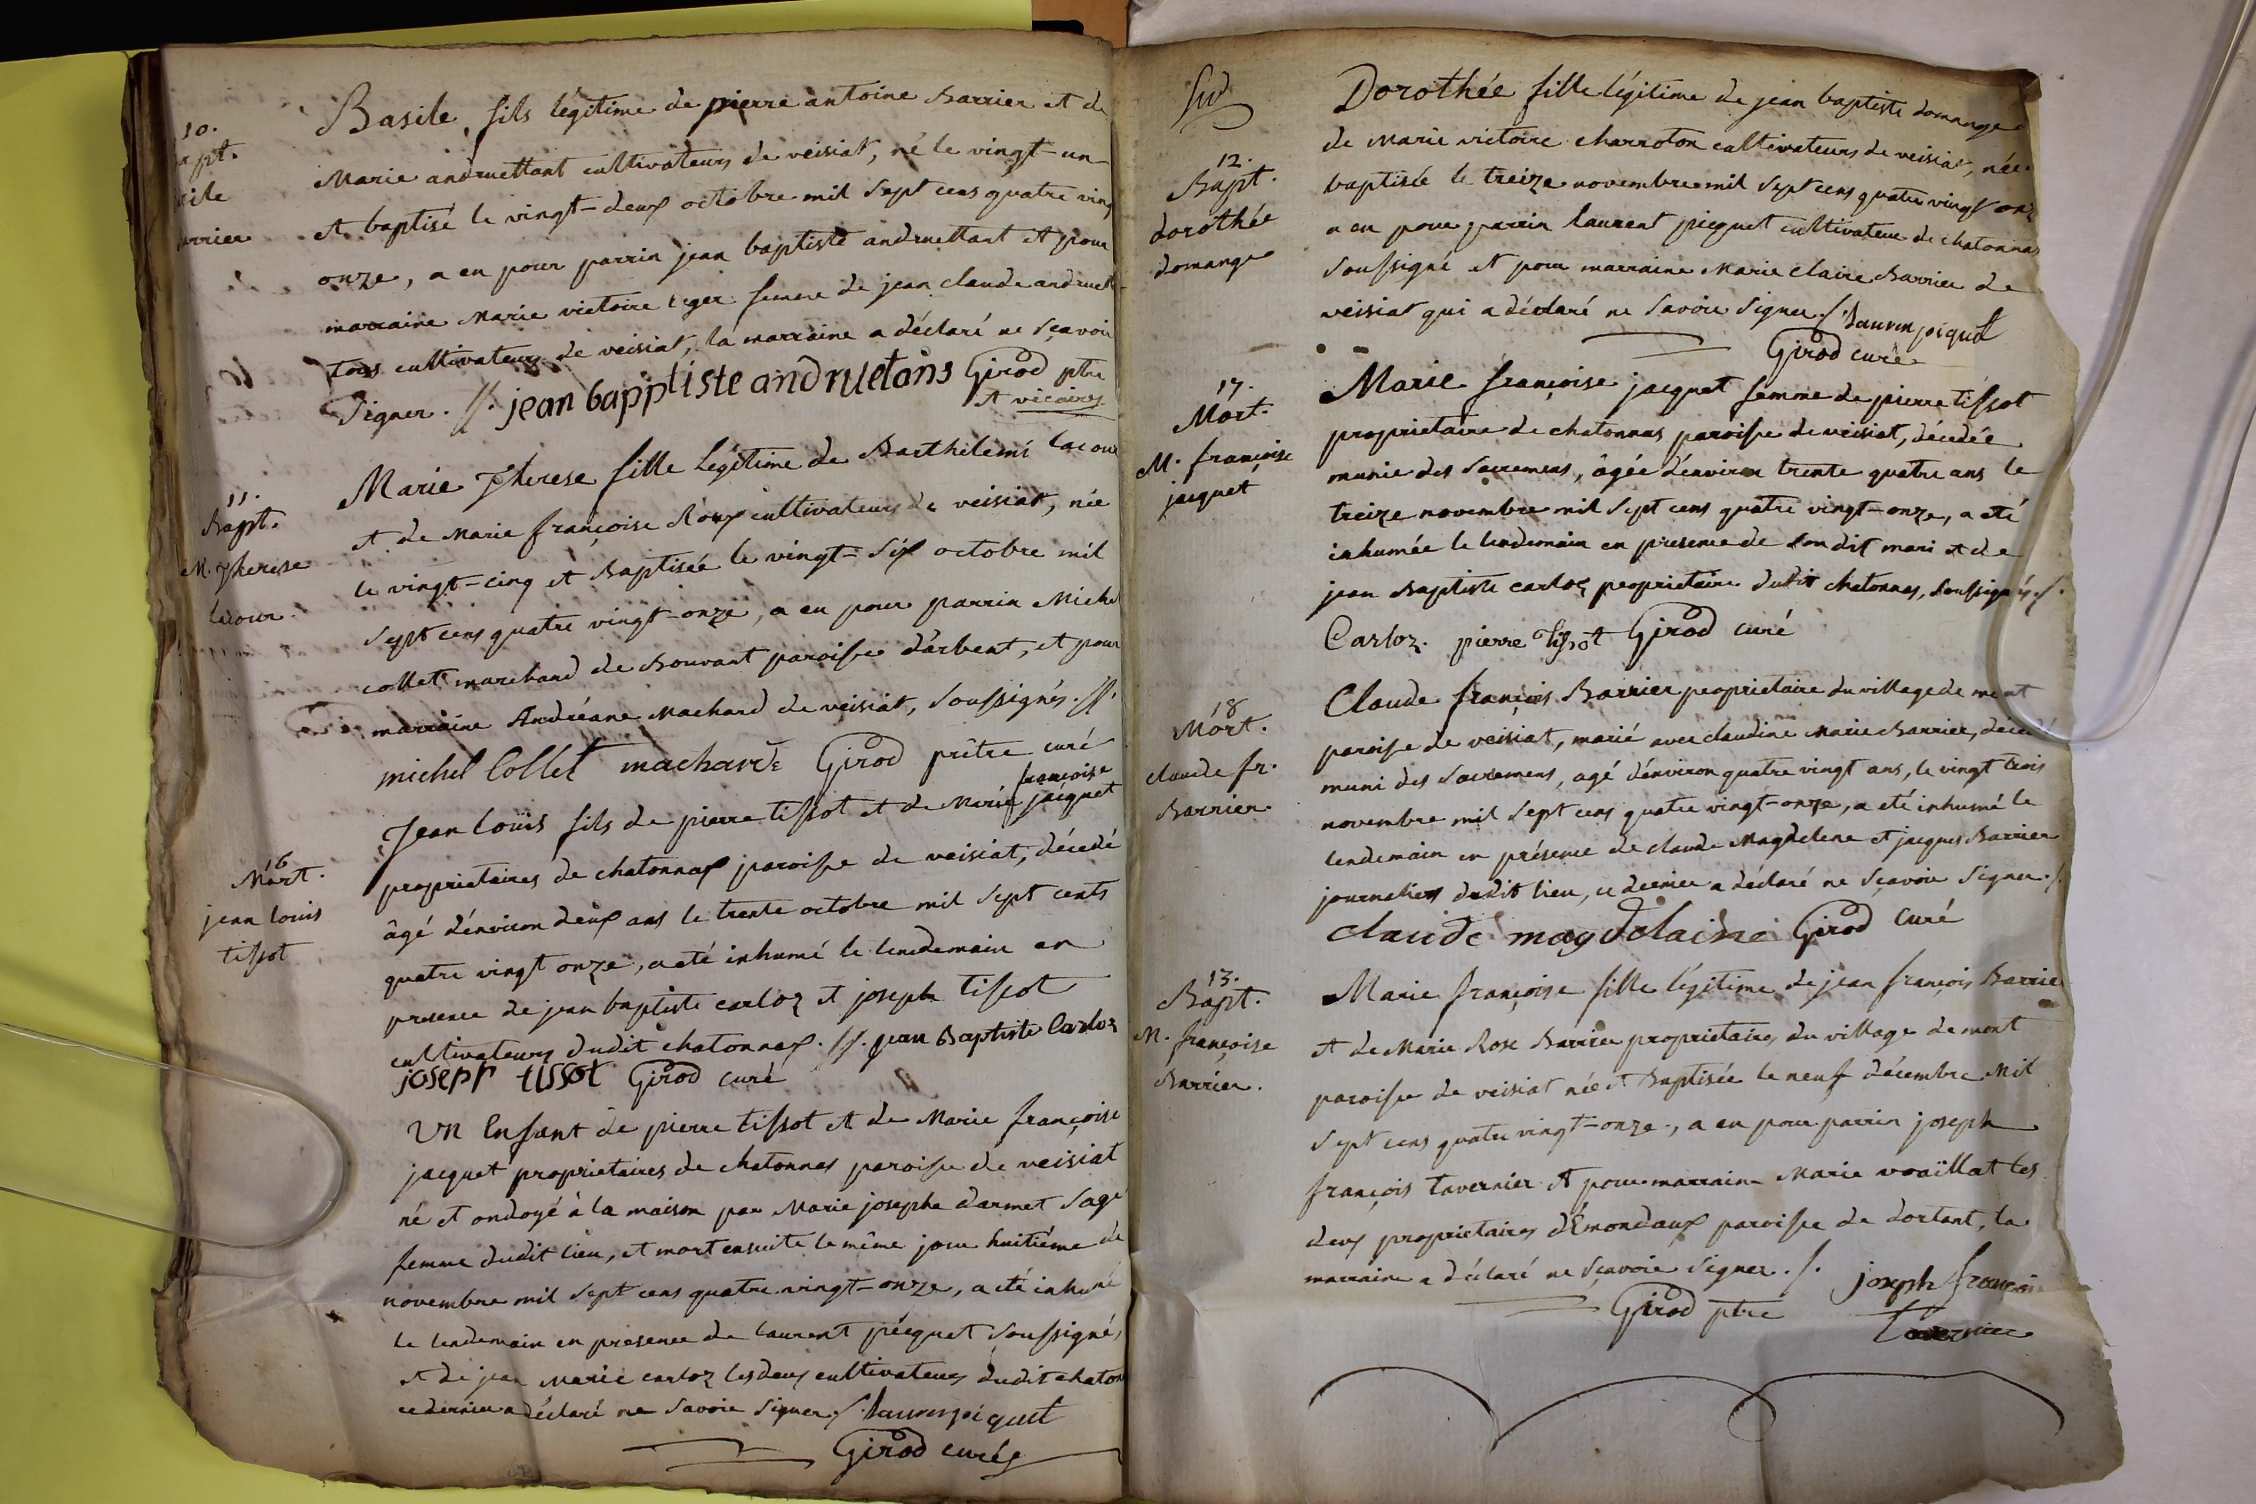 10.
apt.
sile
arrier
Basile, fils légitime de pierre antoine Barrier et de
Marie andruettant cultivateurs de veisiat, né le vingt-un
et baptisé le vingt-deux octobre mil sept cens quatre ving
onze, a eu pour parrin jean baptiste andruettant et pour
marraine Marie victoire leger femme de jean claude andruett
tous cultivateurs de veisiat, la marraine a déclaré ne sçavoir
signer. //. jean bapptiste andruetans Girod ptre
et vicaire
11.
Bapt.
M. Therese
lacour
Marie Therese fille légitime de Barthilemi lacour
et de Marie françoise Roux cultivateurs de veisiat, née
le vingt-cinq et Baptisée le vingt-six octobre mil
sept cens quatre vingt-onze, a eu pour parrin Michel
collet marchand de Bouvant paroisse d'arbent, et pour
marraine Andréane Machard de veisiat, soussignés. //.
michel Collet machard Girod prêtre curé
16
Mort.
jean louis
tissot
Jean louis fils de pierre tissot et de Marie françoise jacquet
propriétaires de chatonnax paroisse de veisiat, décedé
âgé d'environ deux ans le trente octobre mil sept cents
quatre vingt onze, a eté inhumé le lendemain en
presence de jean baptiste carloz et joseph tissot
cultivateurs dudit chatonnax. //. jean Baptiste Carloz
joseph tissot Girod curé
Un Enfant de pierre tissot et de Marie françoise
jacquet proprietaires de chatonnas paroisse de veisiat
né et ondoyé à la maison par Marie josephe darmet sage
femme dudit lieu, et mort ensuite le même jour huitiéme de
novembre mil sept cens quatre vingt-onze, a eté inhumé
le lendemain en presence de laurent pécquet soussigné,
et de jean Marie carloz les deux cultivateurs dudit chaton
ce dernier a déclaré ne savoir signer. /. laurenpiquet
Girod curé
12.
Bapt.
dorothée
domange
Dorothée fille légitime de jean baptiste domange
de Marie victoire charroton cultivateurs de veisiat, née
baptisée le treize novembre mil sept cens quatre vingt onz
a eu pour parrin laurent picquet cultivateur de chatonnas
soussigné et pour marraine Marie claire Barrier de
veisiat qui a déclaré ne savoir signer. /. laurenpiquet
Girod curé
17.
Mort.
M. françoise
jacquet
Marie françoise jacquet femme de pierre tissot
proprietaire de chatonnas paroisse de veisiat, décedée
munie des sacremens, âgée d'environ trente quatre ans le
treize novembre mil sept cens quatre vingt-onze, a eté
inhumée le lendemain en presence de son dit mari et de
jean Baptiste carloz proprietaire dudit chatonnas, soussignés. /.
Carloz. pierre tissot Girod curé
18
Mort.
claude fr.
Barrier.
Claude françois Barrier proprietaire du village de mont
paroisse de veisiat, marié avec claudine Marie Barrier, déced
muni des sacremens, agé d'environ quatre vingt ans, le vingt trois
novembre mil sept cens quatre vingt-onze, a eté inhumé le
lendemain en présence de claude Magdelene et jacques Barrier
journaliers dudit lieu, ce dernier a déclaré ne sçavoir signer. /.
claude magdelaine Girod curé
13.
Bapt.
M. françoise
Barrier.
Marie françoise fille légitime de jean françois Barrier
et de Marie Rose Barrier proprietaires du village de mont
paroisse de veisiat née et Baptisée le neuf décembre Mil
sept cens quatre vingt-onze, a eu pour parrin joseph
françois tavernier et pour marraine Marie vouaïllat les
deux proprietaires d'Emondaux paroisse de dortant, la
marraine a déclaré ne sçavoir signer. /. joseph françoi
Girod ptre tavernier